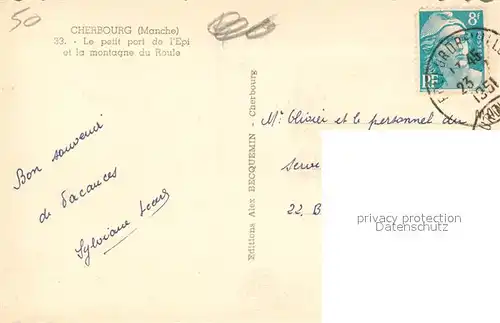 50
CHERBOURG (Manche)
33. - Le petit port de l'Epi
et la montagne du Roule
8F
RF
23
1951
Bon souvenir
de vacances
Sylviane
Editions Alex BECQUEMIN - Cherbourg
Mr Olivier et le personnel du
22. B
privacy protection
Datenschutz